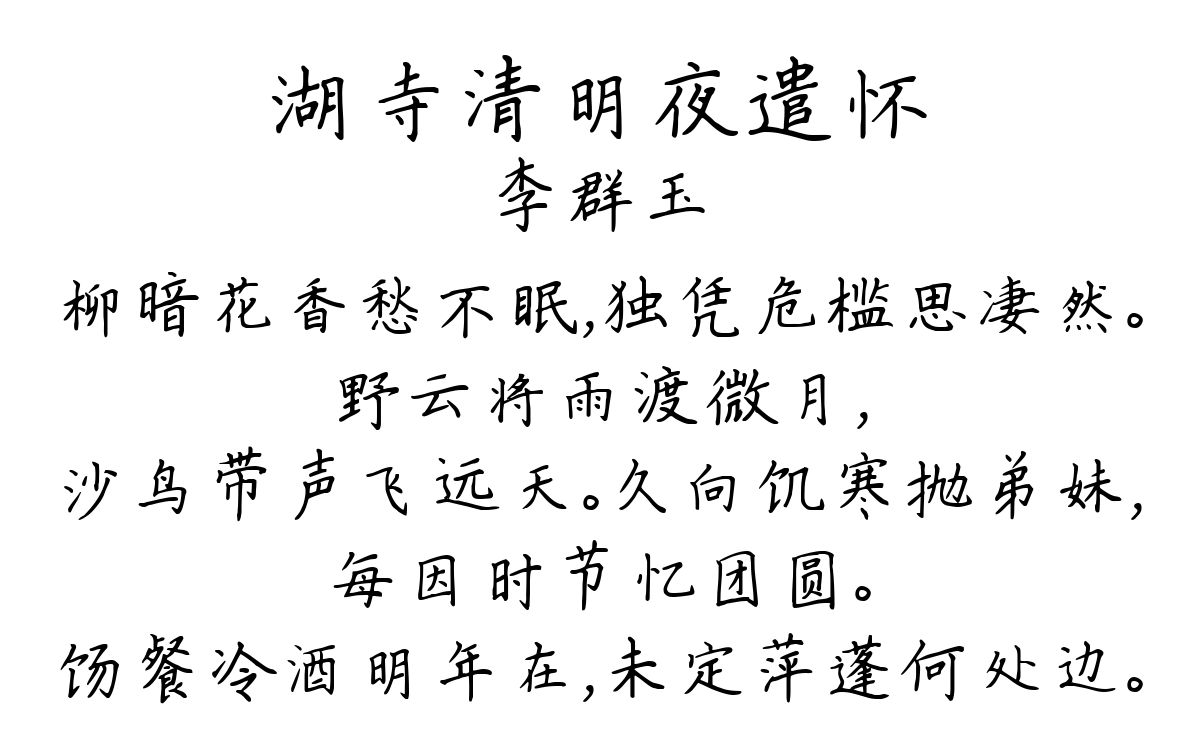 湖寺清明夜遣怀
李群玉
柳暗花香愁不眠,独凭危槛思凄然。
野云将雨渡微月,
沙鸟带声飞远天。久向饥寒抛弟妹,
每因时节忆团圆。
饧餐冷酒明年在,未定萍蓬何处边。